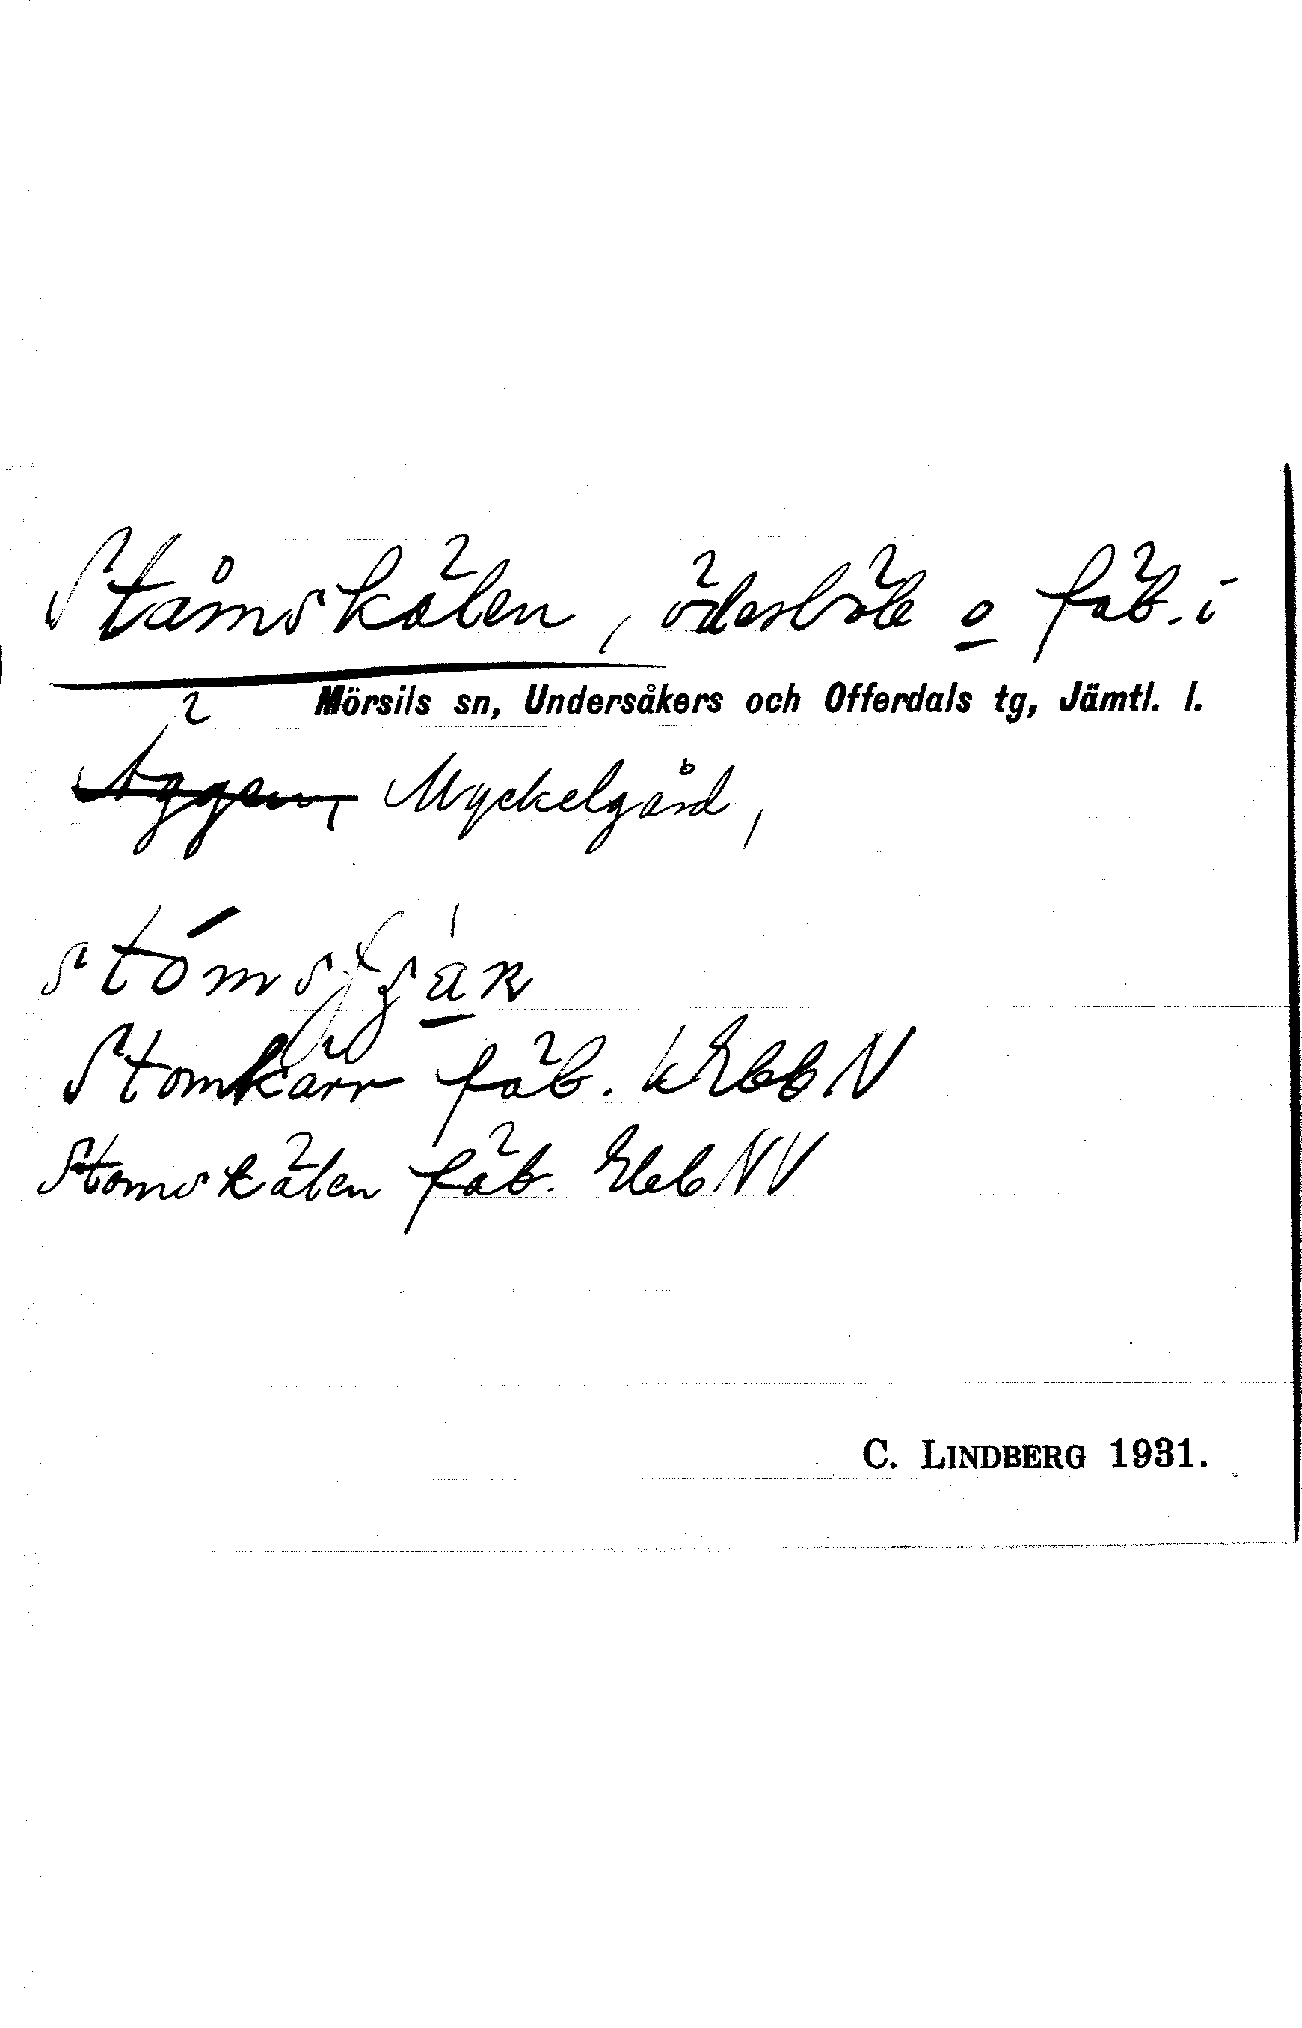 Ståmskälen, ödesböle o fäb. i
Mörsils sn, Undersåkers och Offerdals tg, Jämtl. l.
Äggen, Myckelgård,
Stomkärr fäb. k Ebb N
Stomskälen fäb. Ebb NV
C. LINDBERG 1931.